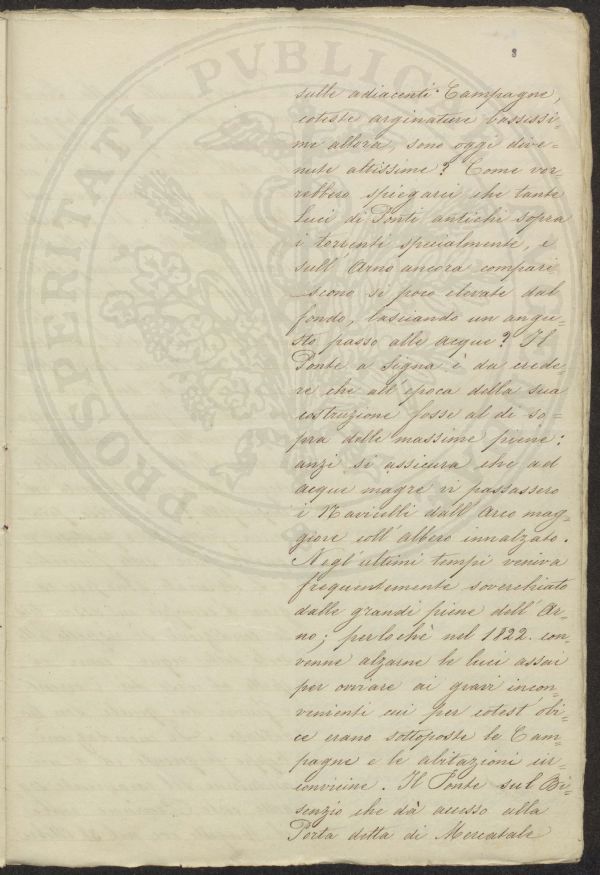 8
sulle adiacenti Campagne,
coteste arginature bassissi=
me allora, sono oggi dive=
nute altissime? Come vor=
rebbero spiegarci che tante
luci di Ponti antichi sopra
i torrenti specialmente, e
sull' Arno ancora compari
scono sì poco elevate dal
fondo, lasciando un angu=
sto passo alle acque? Il
Ponte a Signa è da crede
re che all' epoca della sua
costruzione fosse al di so=
pra delle massime piene:
anzi si assicura che ad
acque magre vi passassero
i Navicelli dall' Arco mag=
giore coll' albero innalzato.
Negl' ultimi tempi veniva
frequentemente soverchiato
dalle grandi piene dell' Ar=
no; perlochè nel 1822. con=
venne alzarne le luci assai
per ovviare ai gravi incon=
venienti cui per cotest' obi=
ce erano sottoposte le Cam=
pagne e le abitazioni cir=
convicine. Il Ponte sul Bi=
senzio che dà accesso alla
Porta detta di Mercatale
PROSPERITATI PVBLICAE